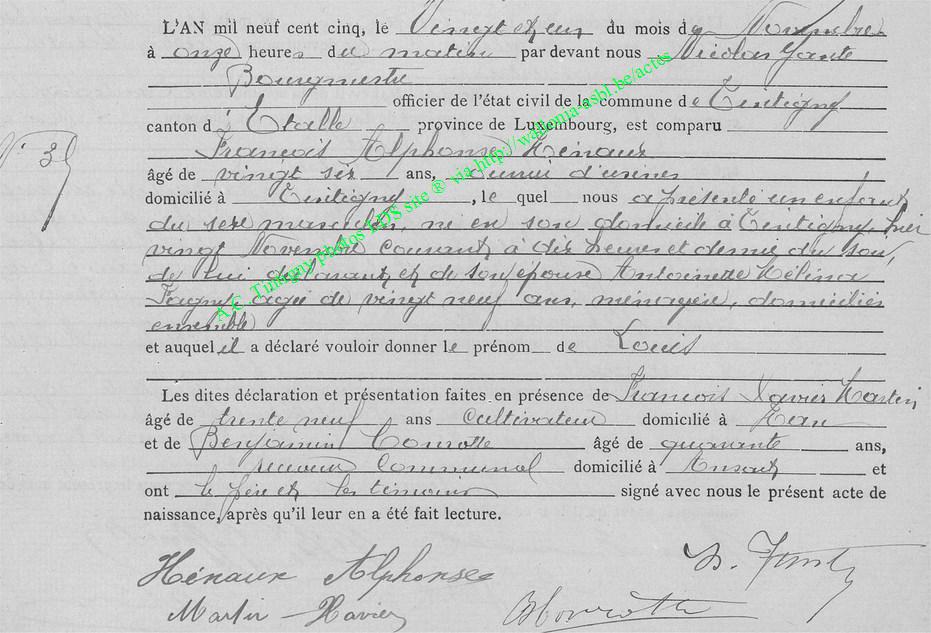 L'AN mil neuf cent cinq, le Vingt et un du mois de Novembre
à onze heures du matin par devant nous Nicolas
Bourgmestre
officier de l'état civil de la commune de Tintigny
canton d' Etalle province de Luxembourg, est comparu
N° 39
François Alphonse Hénaux
âgé de vingt six ans, d'usines
domicilié à Tintigny, le quel nous a présenté un enfant
du sexe masculin, né en son domicile à Tintigny, hier
vingt Novembre courant à dix heures et demie du soir,
de lui déclarant et de son épouse Antoinette Mélina
Fagny, agée de vingt neuf ans, ménagère, domiciliés
ensemble
et auquel il a déclaré vouloir donner le prénom de Louis
Les dites déclaration et présentation faites en présence de François Xavier Martin,
âgé de trente neuf ans Cultivateur domicilié à
et de Benjamin âgé de quarante ans,
receveur Communal domicilié à Ansart et
ont le père et les témoins signé avec nous le présent acte de
naissance, après qu'il leur en a été fait lecture.
Hénaux Alphonse
Martin - Xavier
A.C. Tintigny photos LDS site ® via http://wallonia-asbl.be/actes